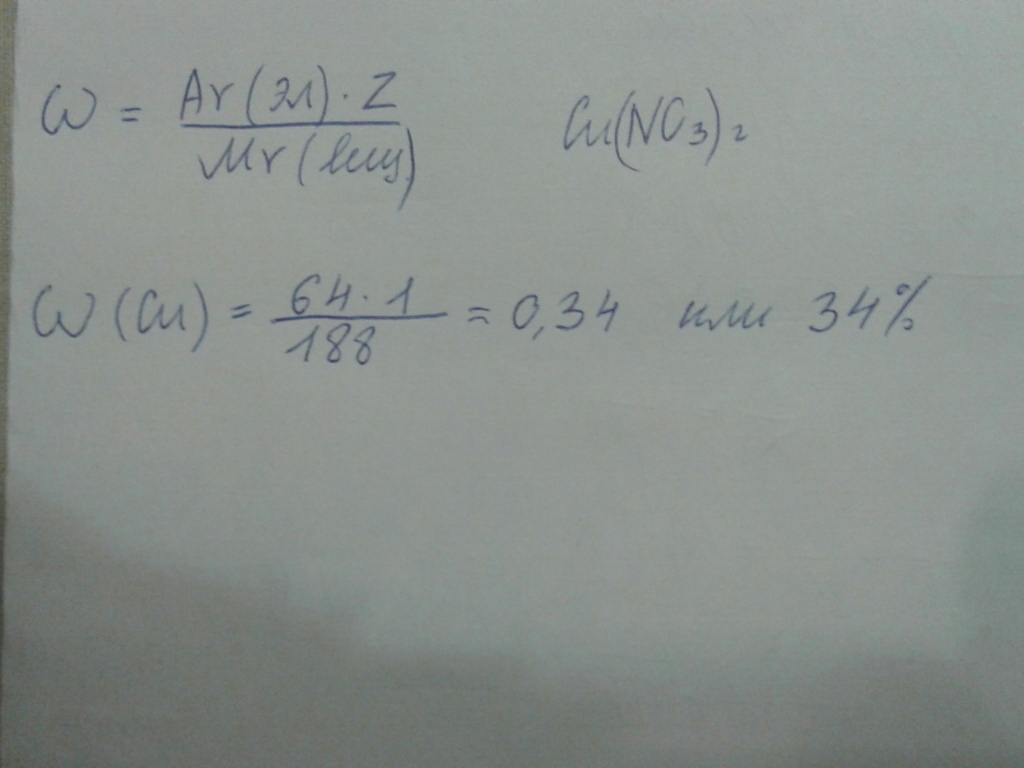 ω = Ar(эл)·Z / Mr(вещ) Cu(NO3)2
ω(Cu) = 64·1 / 188 = 0,34 или 34%